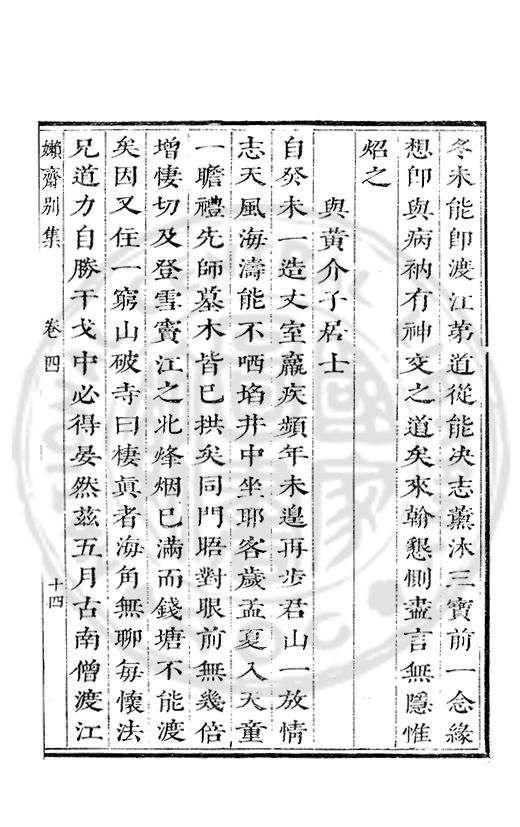 冬未能卽渡江苐道從能決志薰沐三寶前一念緣
想卽與病衲有神交之道矣來翰懇惻盡言無隱惟
炤之
與黃介子居士
自癸未一造丈室羸疾頻年未遑再步君山一放情
志天風海濤能不哂埳井中坐耶客歲孟夏入天童
一瞻禮先師墓木皆已拱矣同門晤對眼前無幾倍
增悽切及登雪竇江之北烽烟已滿而錢塘不能渡
矣因又住一窮山破寺曰棲眞者海角無聊每懷法
兄道力自勝干戈中必得晏然茲五月古南僧渡江
嬾齋別集 卷四 十四